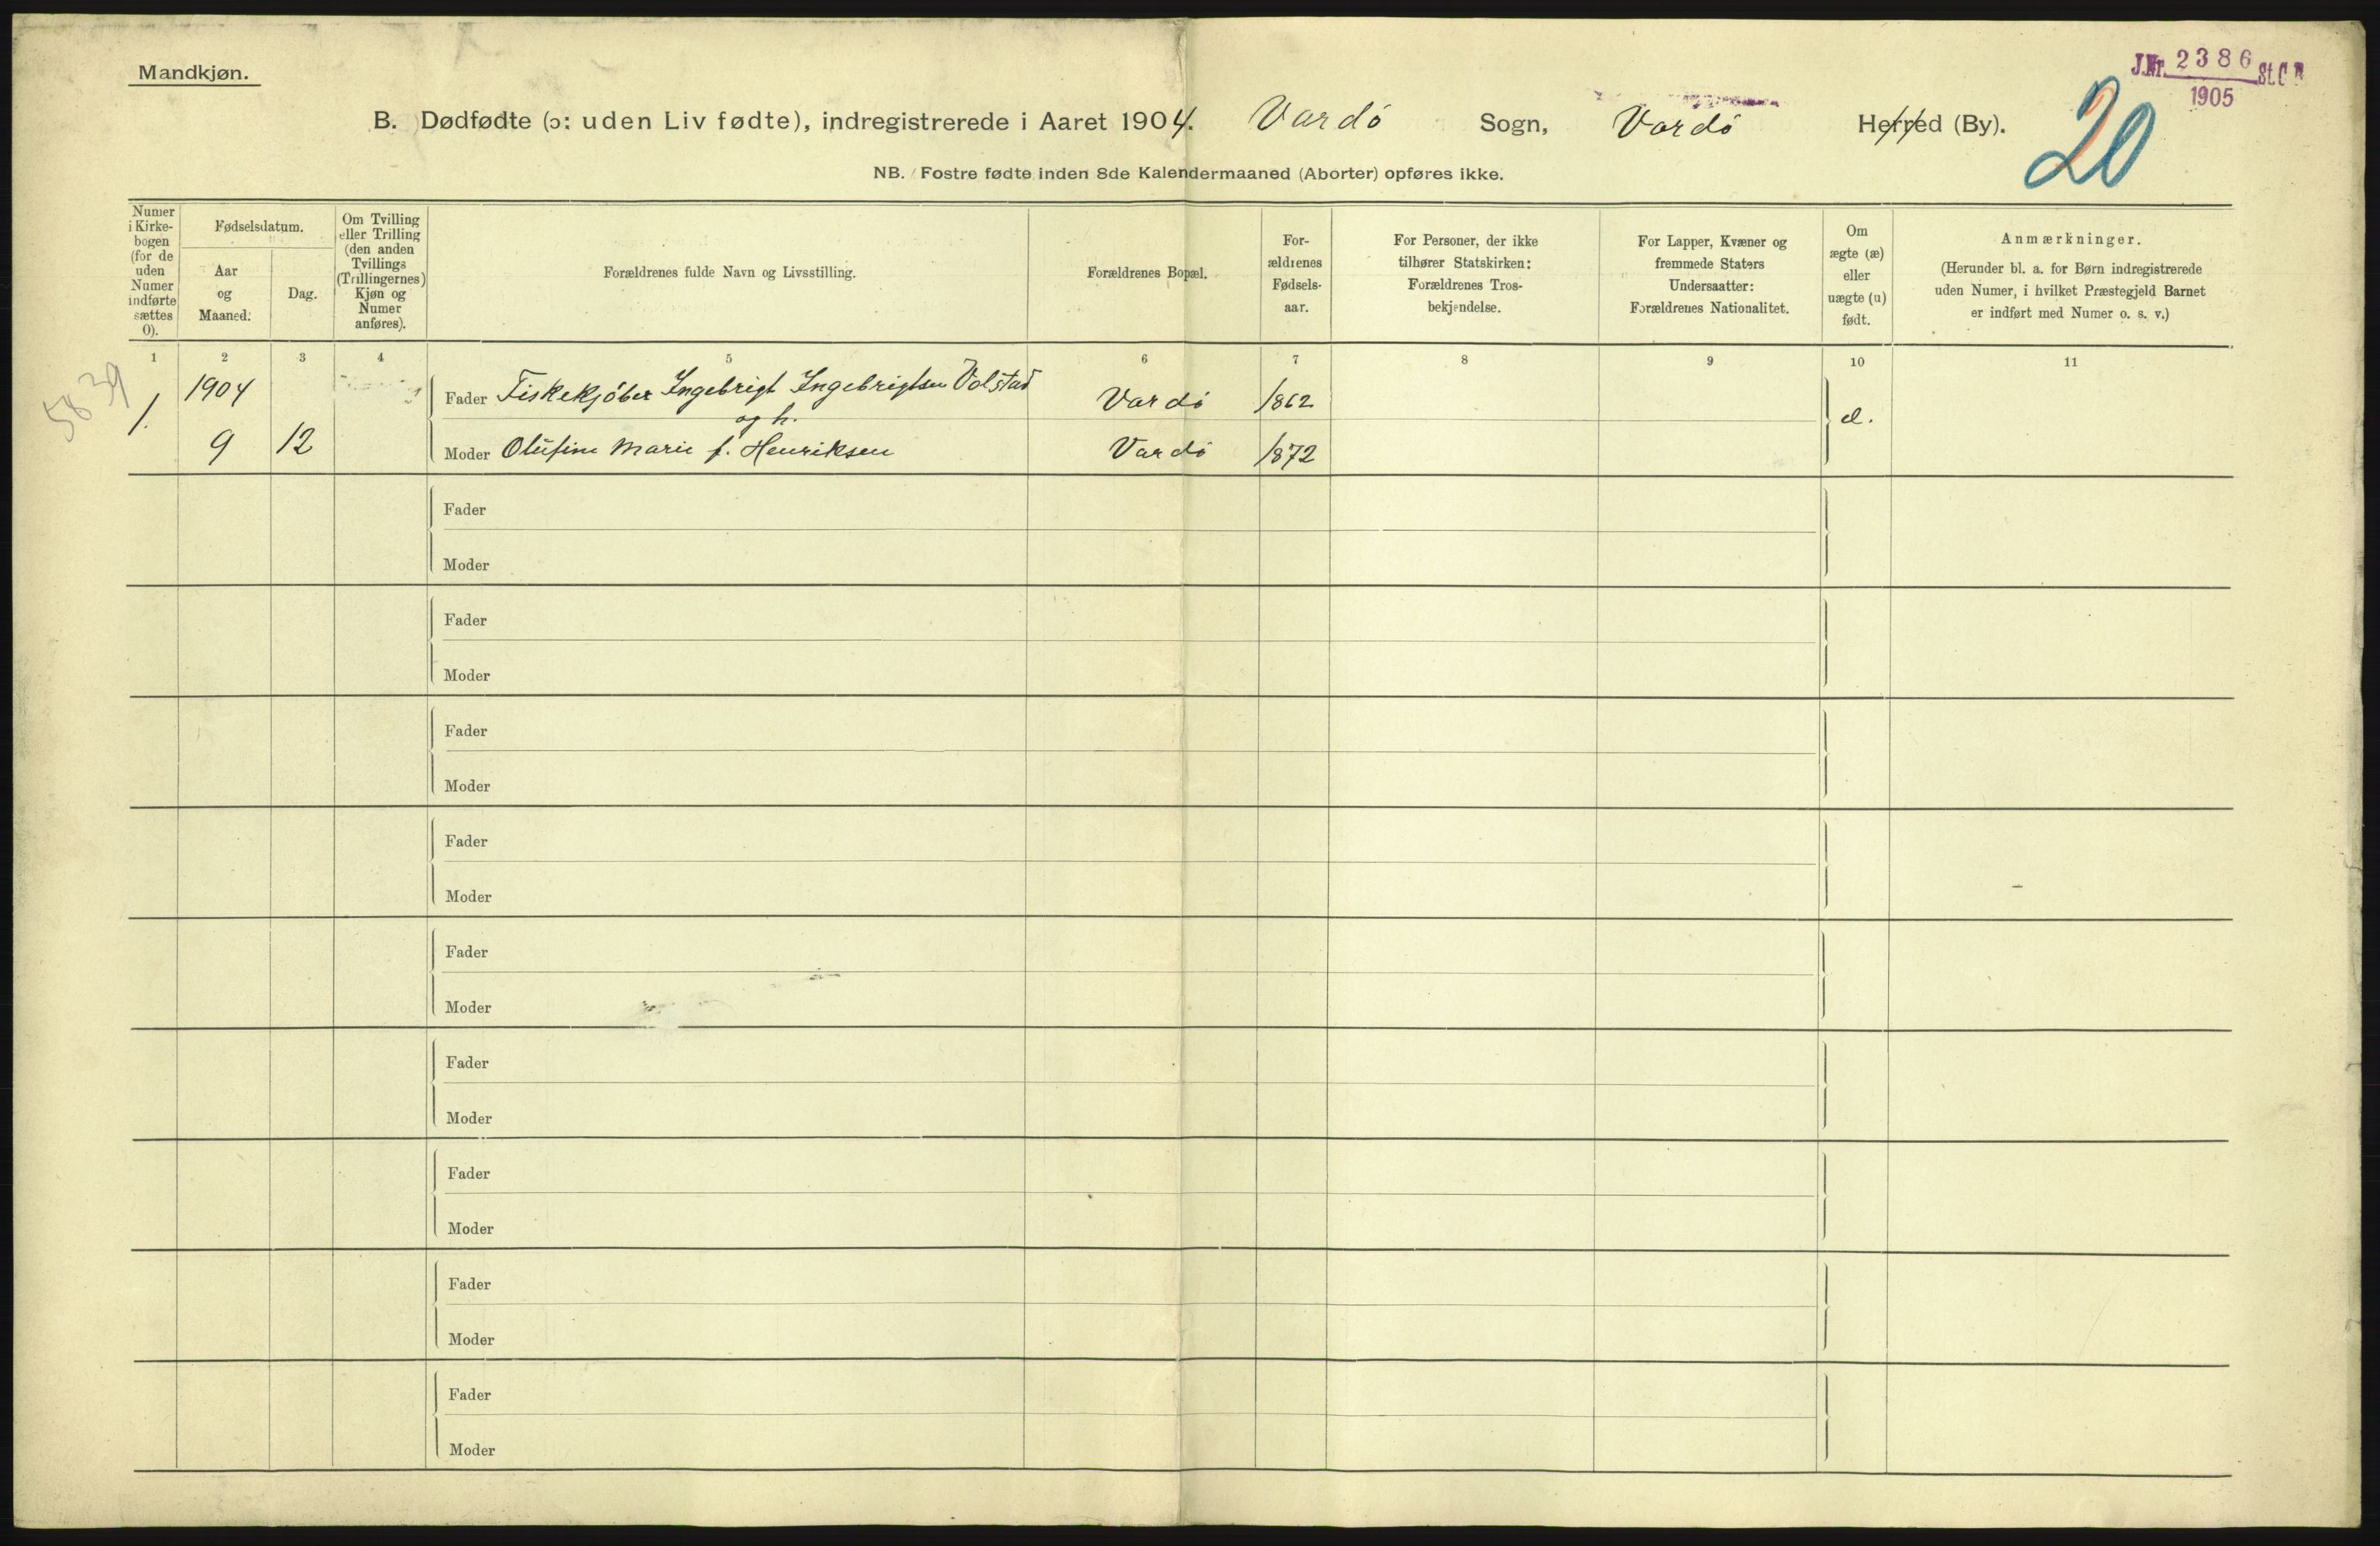 Mandkjøn.
J.Nr. 2386 St.C.B.
1905
20
B. Dødfødte (ɔ: uden Liv fødte), indregistrerede i Aaret 1904. Vardö Sogn, Vardö Herred (By).
NB. Fostre fødte inden 8de Kalendermaaned (Aborter) opføres ikke.
Numer
i Kirke-
bogen
(for de
uden
Numer
indførte
sættes
0).
Fødselsdatum.
Aar
og
Maaned.
Dag.
Om Tvilling
eller Trilling
(den anden
Tvillings
(Trillingernes)
Kjøn og
Numer
anføres).
Forældrenes fulde Navn og Livsstilling.
Forældrenes Bopæl.
For-
ældrenes
Fødsels-
aar.
For Personer, der ikke
tilhører Statskirken:
Forældrenes Tros-
bekjendelse.
For Lapper, Kvæner og
fremmede Staters
Undersaatter:
Forældrenes Nationalitet.
Om
ægte (æ)
eller
uægte (u)
født.
Anmærkninger.
(Herunder bl. a. for Børn indregistrerede
uden Numer, i hvilket Præstegjeld Barnet
er indført med Numer o. s. v.)
1 2 3 4 5 6 7 8 9 10 11
5839
1. 1904 Fader Fiskekjöber Ingebrigt Ingebrigtsen Volstad Vardö 1862
og h. æ.
9 12 Moder Olufine Marie f. Henriksen Vardö 1872
Fader
Moder
Fader
Moder
Fader
Moder
Fader
Moder
Fader
Moder
Fader
Moder
Fader
Moder
Fader
Moder
Fader
Moder